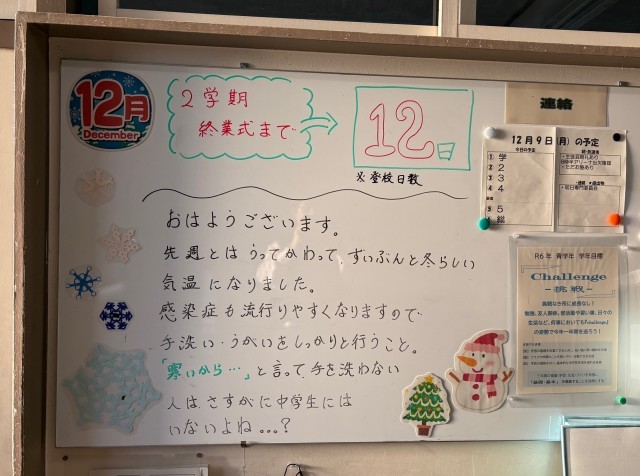 12月
December
2学期
終業式まで
12日
※登校日数
おはようございます。
先週とは うってかわって、ずいぶんと冬らしい
気温になりました。
感染症も流行りやすくなりますので
手洗い・うがいをしっかりと行うこと。
「寒いから…」と言って手を洗わない
人は、さすがに中学生には
いないよね...?
連絡
12月9日(月)の予定
1 学
2
3
4
5
総
R6年 青学年 学年目標
Challenge
－挑戦－